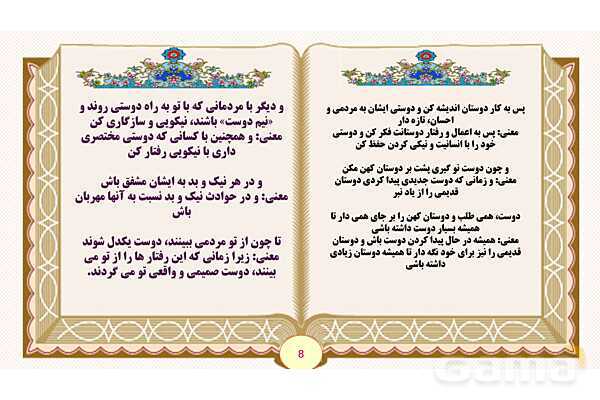 پس به کار دوستان اندیشه کن و دوستی ایشان به مردمی و
احسان، تازه دار
معنی: پس به اعمال و رفتار دوستانت فکر کن و دوستی
خود را با انسانیت و نیکی کردن حفظ کن
و چون دوست نو گیری پشت بر دوستان کهن مکن
معنی: و زمانی که دوست جدیدی پیدا کردی دوستان
قدیمی را از یاد نبر
دوست، همی طلب و دوستان کهن را بر جای همی دار تا
همیشه بسیار دوست داشته باشی
معنی: همیشه در حال پیدا کردن دوست باش و دوستان
قدیمی را نیز برای خود نگه دار تا همیشه دوستان زیادی
داشته باشی
و دیگر با مردمانی که با تو به راه دوستی روند و
«نیم دوست» باشند، نیکویی و سازگاری کن
معنی: و همچنین با کسانی که دوستی مختصری
داری با نیکویی رفتار کن
و در هر نیک و بد به ایشان مشفق باش
معنی: و در حوادث نیک و بد نسبت به آنها مهربان
باش
تا چون از تو مردمی ببینند، دوست یکدل شوند
معنی: زیرا زمانی که این رفتار ها را از تو می
بینند، دوست صمیمی و واقعی تو می گردند.
8
Gama